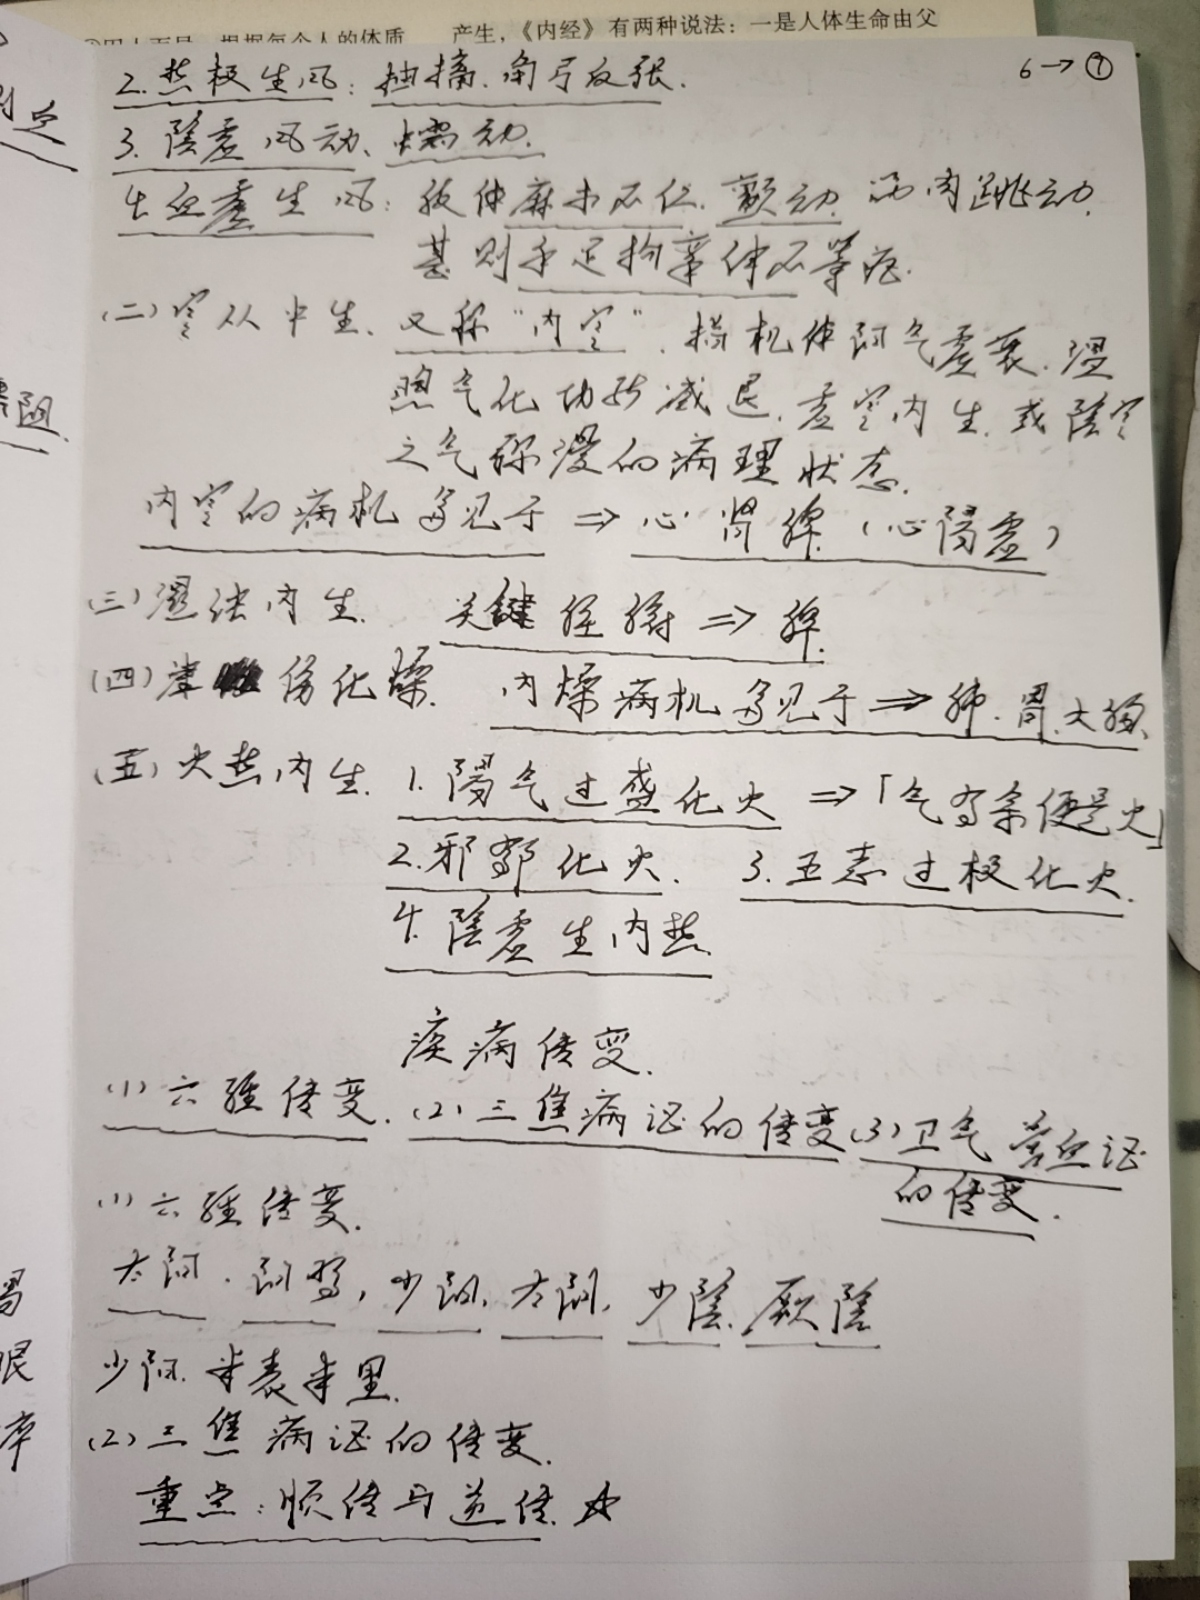 产生，《内经》有两种说法：一是人体生命由父
6→⑦
2.热极生风：抽搐.角弓反张.
3.陰虚风动、蠕动.
4.血虚生风：肢体麻木不仁.颤动.肉跳动.
甚则手足拘挛伸不等症.
(二)寒从中生、又称"内寒".指机体阳气虚衰.温
煦气化功能减退.虚寒内生.或陰寒
之气弥漫的病理状态.
内寒的病机多见于⇒心肾脾(心陽虚)
(三)湿浊内生. 关键脏腑⇒脾.
(四)津伤化燥. 内燥病机多见于⇒肺.胃.大肠
(五)火热内生. 1.陽气过盛化火⇒「气有余便是火」
2.邪郁化火. 3.五志过极化火.
4.陰虚生内热.
疾病传变.
(1)六經传变.(2)三焦病证的传变(3)卫气营血证
的传变.
(1)六經传变.
太阳.阳明,少阳,太阴,少陰.厥陰
少阳.半表半里.
(2)三焦病证的传变.
重点:顺传与逆传.☆